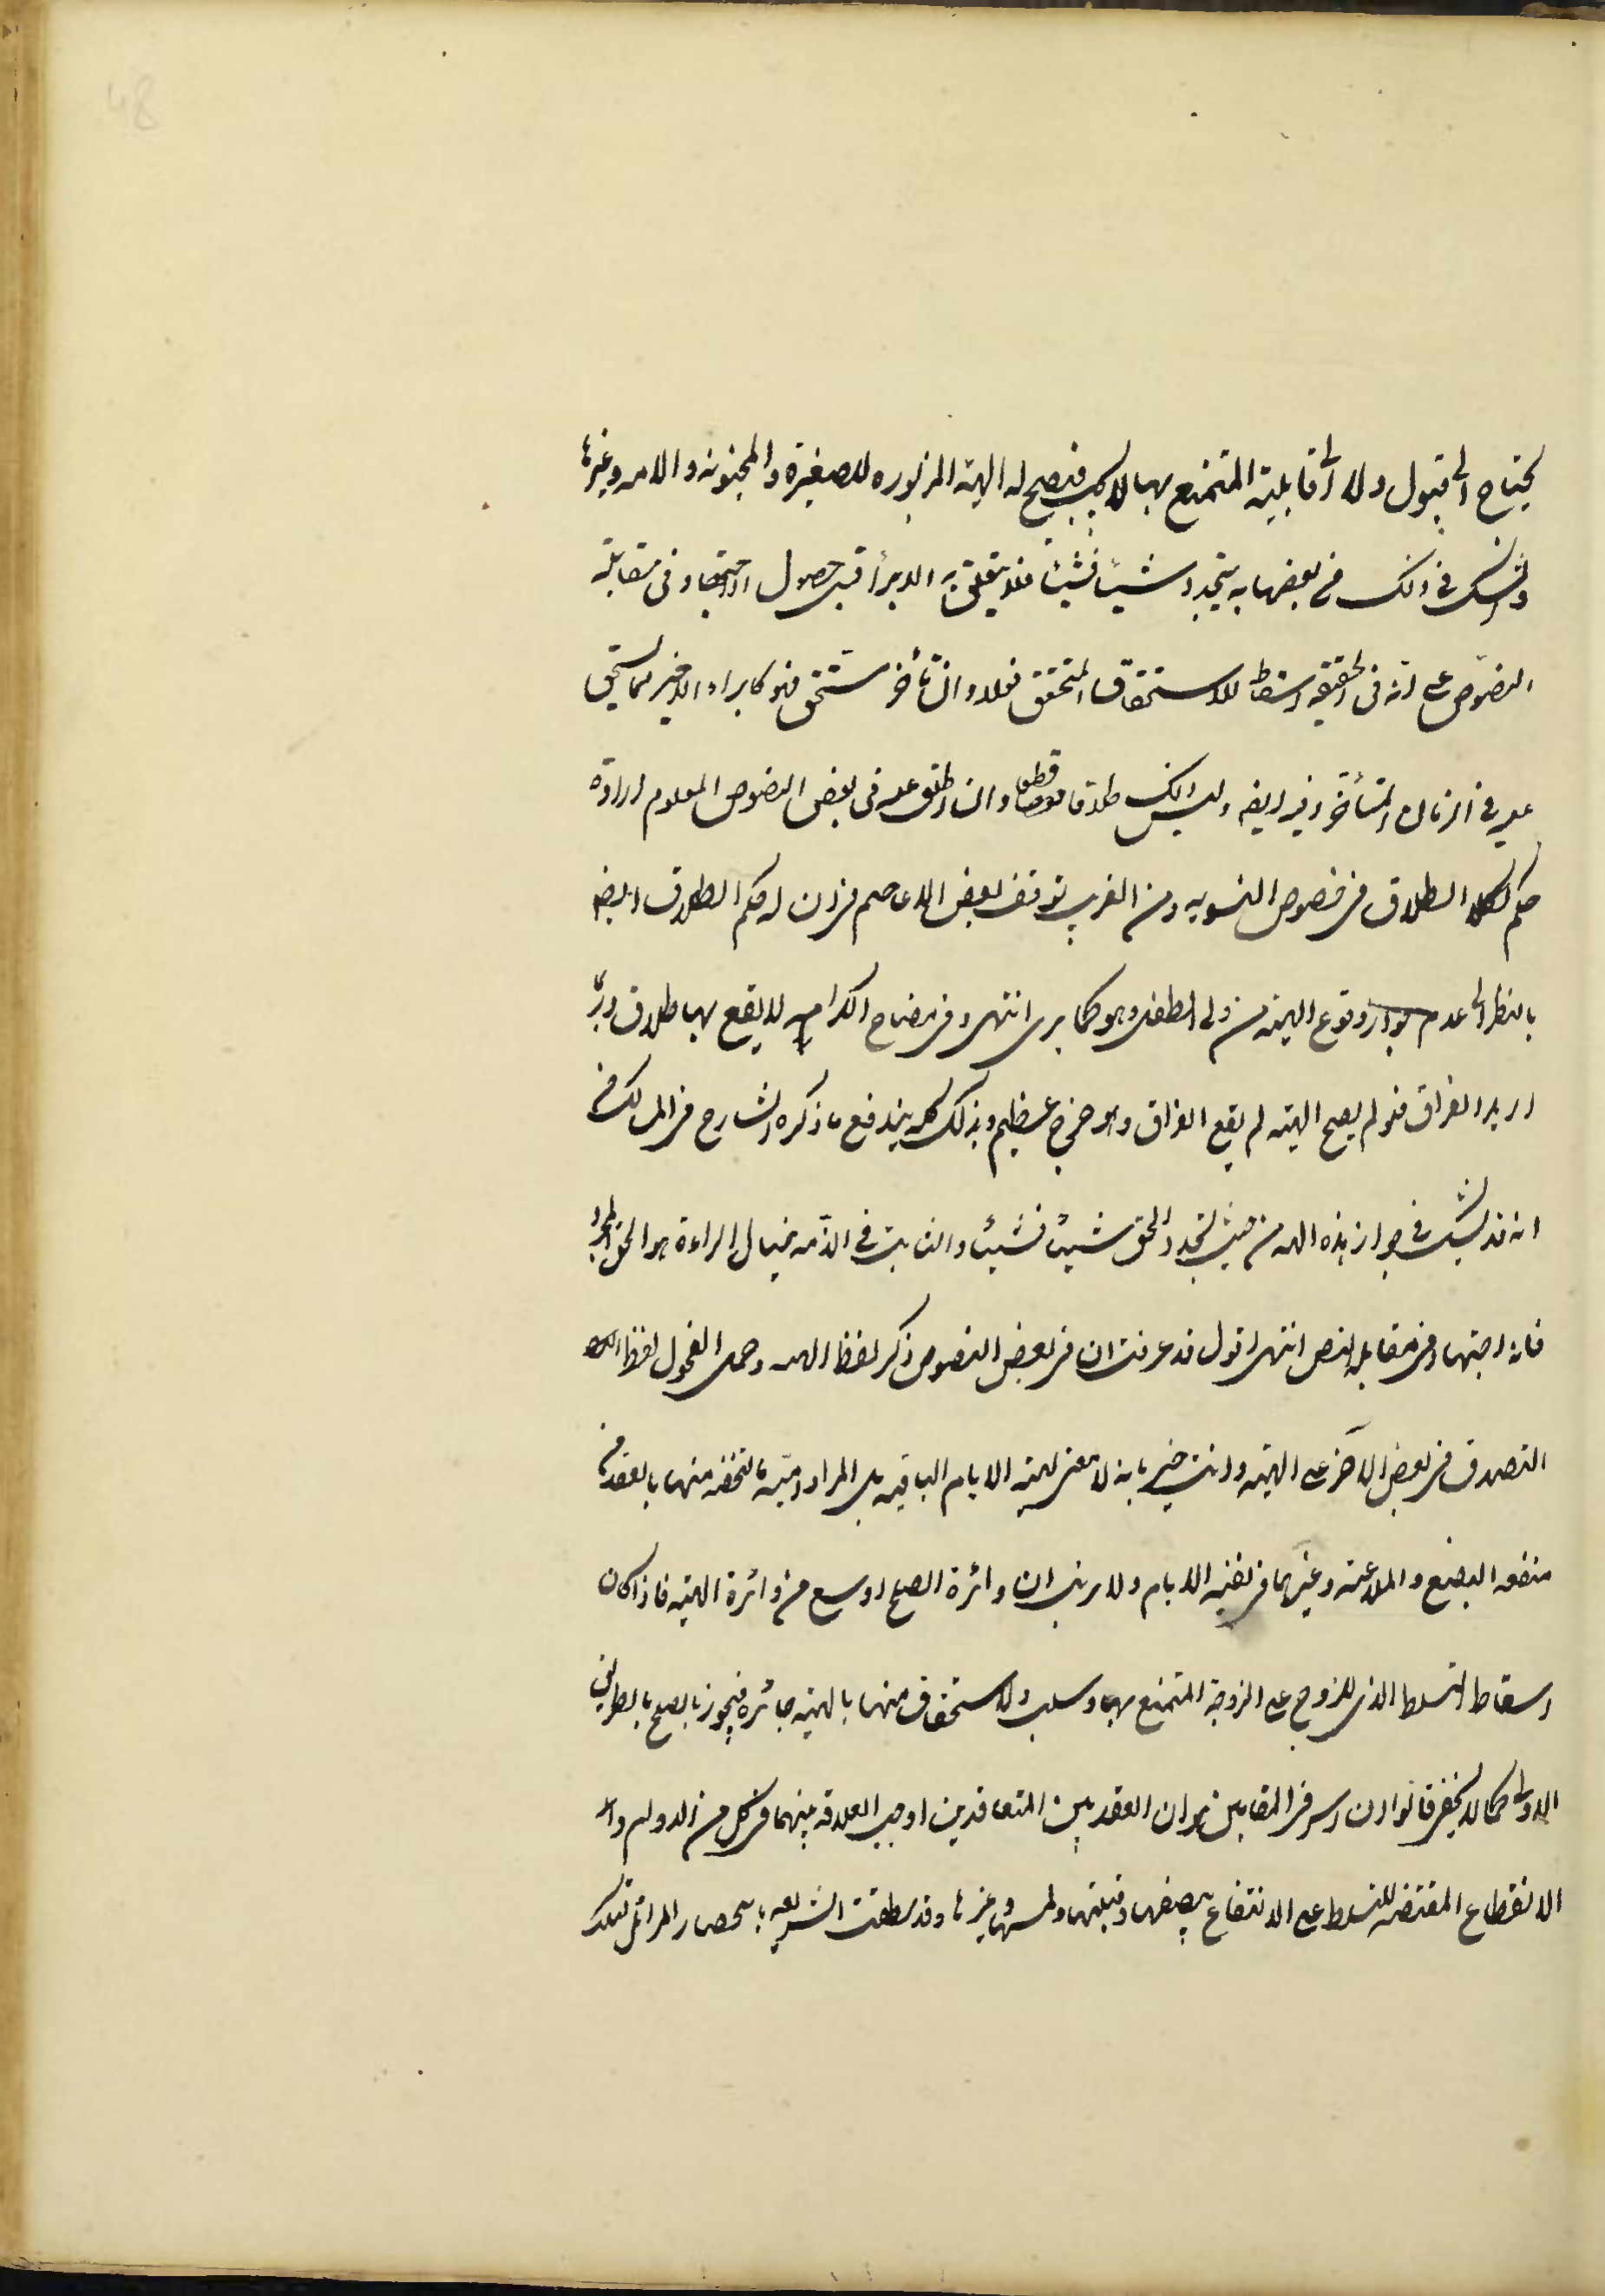 يحتاج الى قبول ولا الى قابلية المتمتع بها لا كيف فتصح له الهبة المزبورة للصغيرة والمجنونة والامه وغيرها
والشك في ذلك من بعضها به يتجدد شيئا فشيئا فلا يتعلق به الابراء قبل حصول اجتهاد في مقابلة
النصوص على انه في الحقيقة اسقاط للاستحقاق المتحقق فعلا وان تأخر مستحق فهو كابراء الاجير مما يستحق
عليه في الزمان المتأخر وفيه ايضا وليس ذلك طلاقا قطعا وان اطلق عليه في بعض النصوص المعلوم ارادة
حكم الطلاق من خصوص التسويه ومن الغريب توقف بعض الاعاصم في ان له حكم الطلاق ايضا
بالنظر الى عدم جواز وقوع الهبة من ولى الطفل وهو كما يرى انتهى وفي مفتاح الكرامة لا يقع بها طلاق وربما
اريد الفراق فلو لم يصح الهبة لم يقع الفراق وهو حرج عظيم وبذلك كله يندفع ما ذكره الشارح في المسالك من
انه قد يشك في جواز هذه الهبة من حيث تجدد الحق شيئا فشيئا والثابت في الذمه حال البراءة هو الحق
فانه اجتهاد في مقابل النص انتهى اقول قد عرفت ان في بعض النصوص ذكر لفظ الهبه وحمل الفحول لفظ
التصدق في بعض الآخر على الهبة وانت خبير بانه لا معنى لهبة الايام الباقية بل المراد هبة ما يستحقه منها بالعقد من
منفعه البضع والملاعبة وغيرهما في بقية الايام ولا ريب ان دائرة الصلح اوسع من دائرة الهبة فاذا كان
اسقاط التسلط الذي للزوج على الزوجة المتمتع بها وسلب الاستحقاق منها بالهبة جائزه فيجوز بالصلح بالطريق
الاولى كما لا يخفى فالوا ان السر في المقابلين هو ان العقد بين المتعاقدين اوجب العلاقة بينهما في كل من الدوام و
الانقطاع المقتضيه للتسلط على الانتفاع ببضعها وقبلتها ولمسها وغيرها وقد نطقت الشريعه بانحصار المزائل لتلك